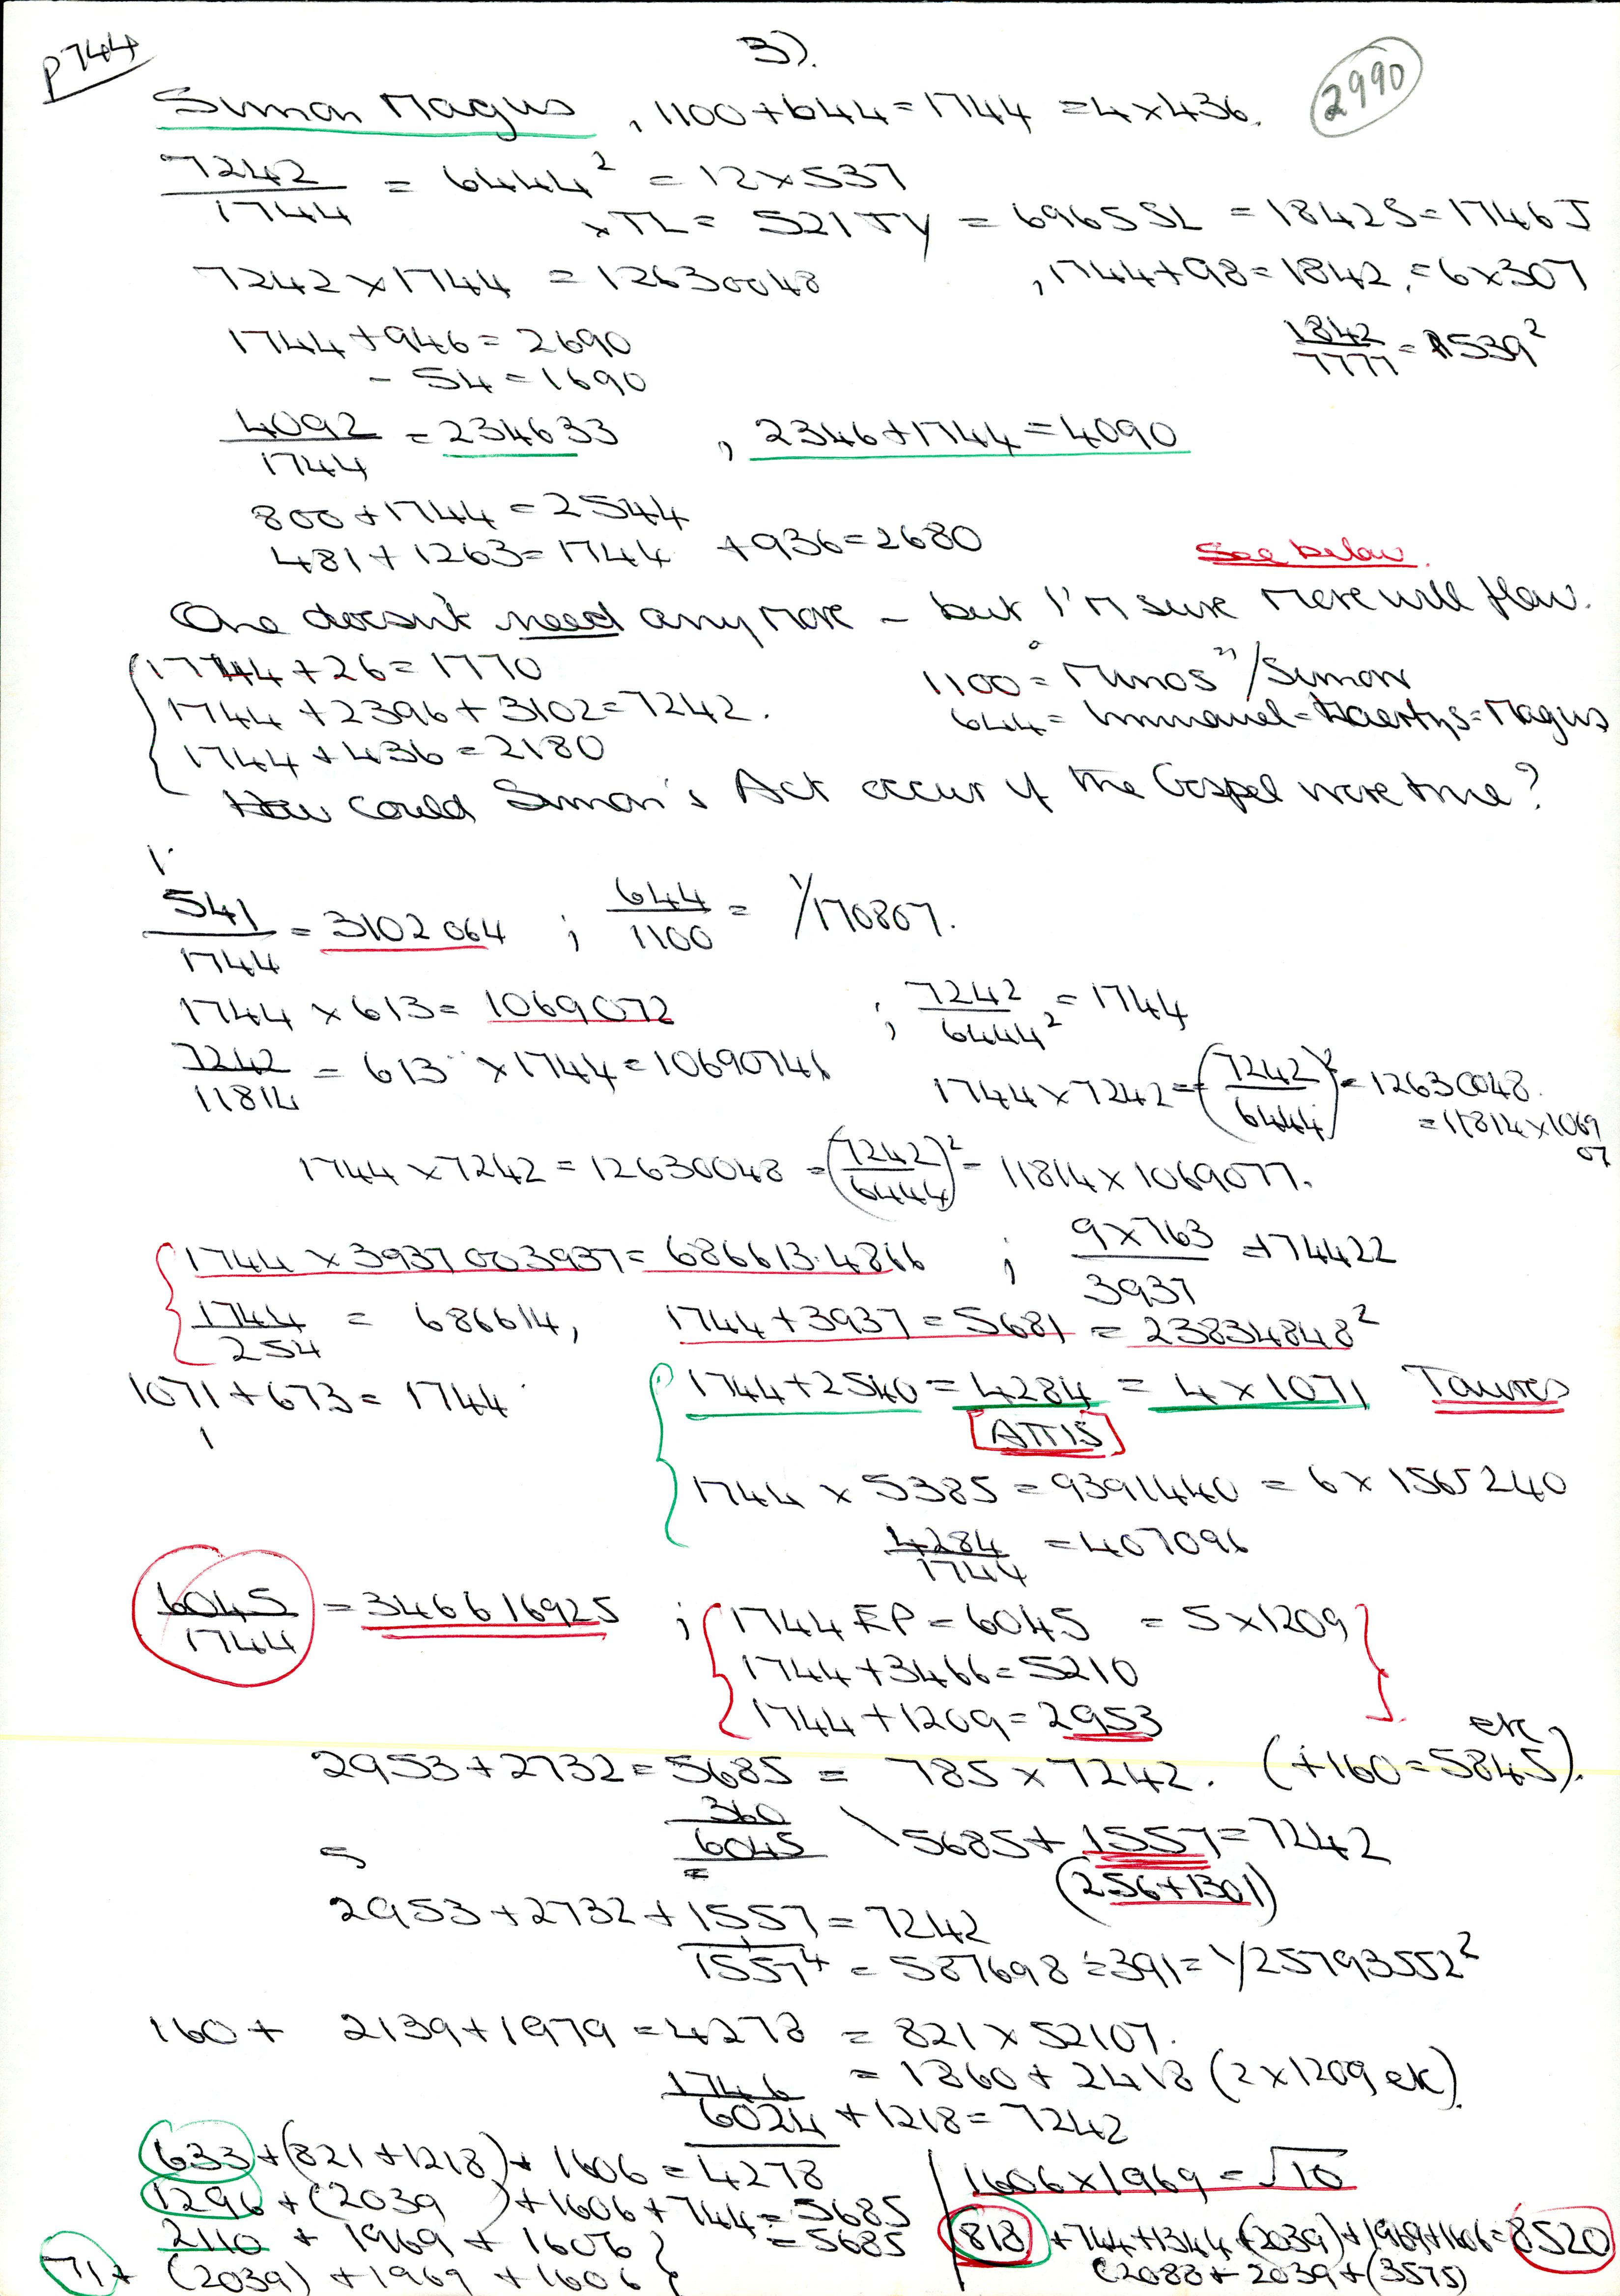 p744
3).
2990
Simon Magus, 1100+644=1744 =4×436.
7242/1744 = 6444² = 12×537
×TL= 521 JY = 6965 SL = 1842S=1746J
7242×1744 = 12630048 , 1744+98=1842, =6×307
1744+946=2690
1842/7777 = 1539²
-54=1690
4092/1744 = 234633 , 2346+1744=4090
800+1744=2544
481+1263=1744 +936=2680
See below.
One doesn't need any more - but I'm sure more will flow.
1744+26=1770
1100= "Minos"/Simon
1744+2396+3102=7242.
644= Immanuel= =Magus
1744+436=2180
How could Simon's Act occur if the Gospel were true?
541/1744 = 3102064 ; 644/1100 = 1/170807.
1744×613= 1069072 ; 7242/6444² = 1744
7242/11814 = 613 ×1744=10690746
1744×7242=(7242/6444)²=12630048.
=11814×1069 07
1744×7242=12630048 =(7242/6444)²= 11814×1069077.
1744×3937003937=686613.4866 ; 9×763/3937 =174422
1744/254 = 686614, 1744+3937=5681 = 23834848²
1071+673=1744
1744+2540=4284 = 4×1071 Taurus
ATTIS
1744×5385=9391440 = 6×1565240
4284/1744 = 407096
6045/1744 = 346616925 ; 1744EP=6045 = 5×1209
1744+3466=5210
1744+1209=2953
etc
2953+2732=5685 = 785×7242. (+160=5845).
360
6045
5685+1557=7242
(256+1301)
2953+2732+1557=7242
1557⁴ = 587698 ÷391= 1/25793552²
160+ 2139+1979=4278 = 821×52107.
= 1860+2418 (2×1209 etc).
1746
6024 +1218=7242
633+(821+1218)+1606=4278
1606×1969=√10
1296+(2039 )+1606+744=5685
2110 + 1969 + 1606 = 5685
818+744+1344+(2039)+1969+1606=8520
71+ (2039)+1969+1606
(2088+2039+(3575)